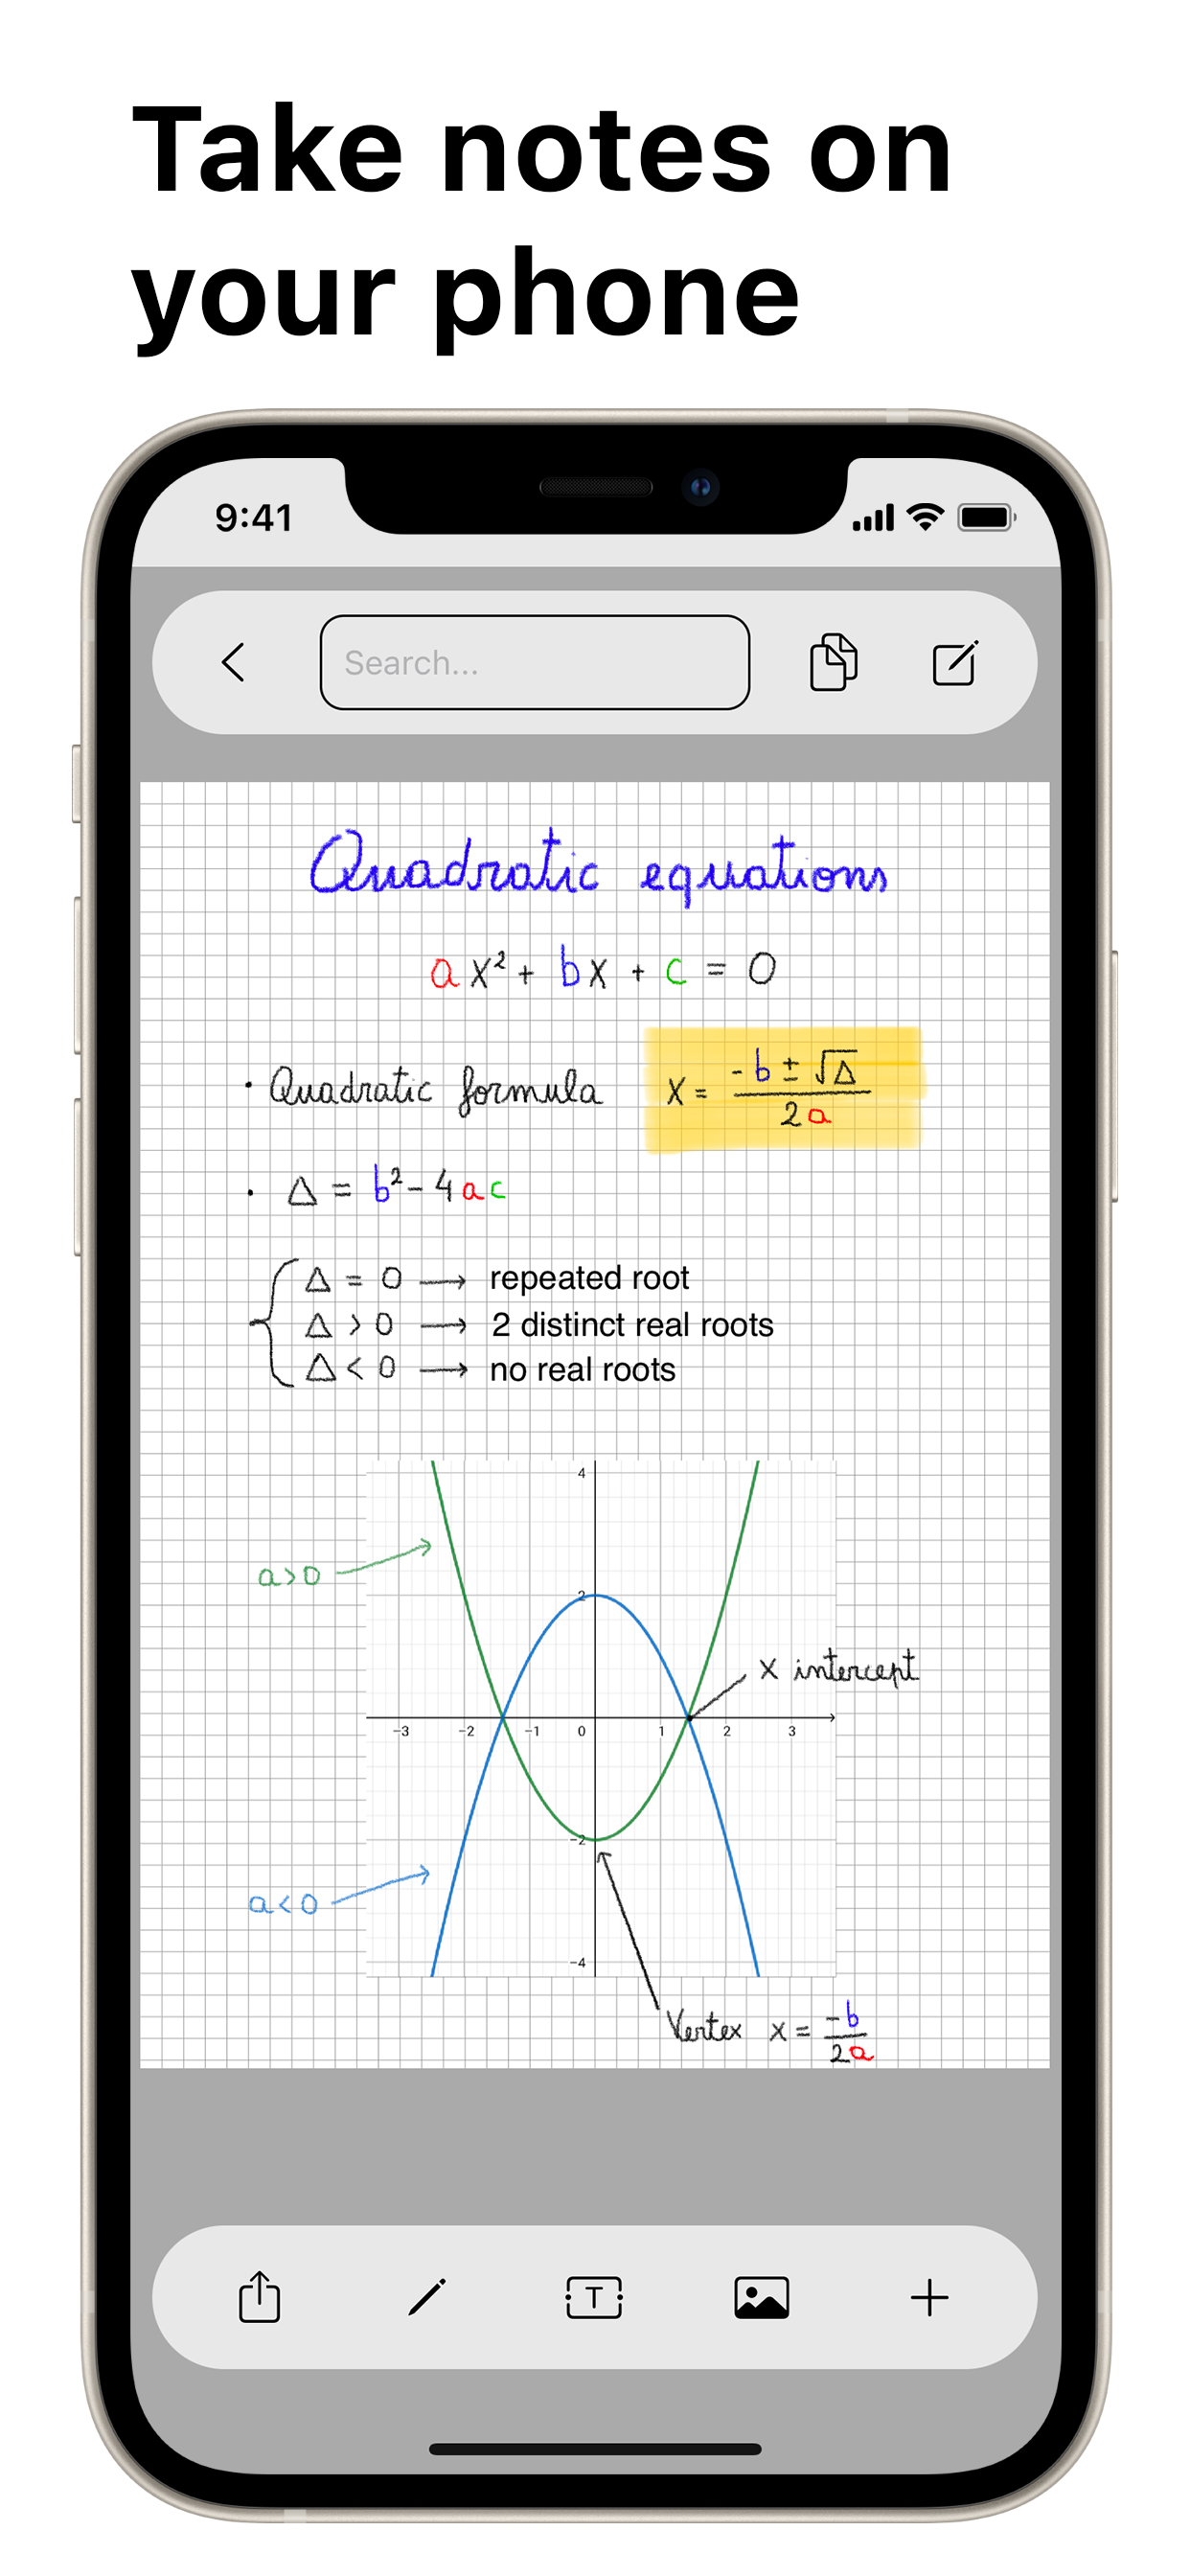 Take notes on
your phone
9:41
Search...
Quadratic equations
ax² + bx + c = 0
· Quadratic formula x = -b ± √Δ / 2a
· Δ = b² - 4ac
Δ = 0 → repeated root
Δ > 0 → 2 distinct real roots
Δ < 0 → no real roots
4
a>0
2
x intercept
-3 -2 -1 0 1 2 3
-2
a<0
-4
Vertex x = -b / 2a
T